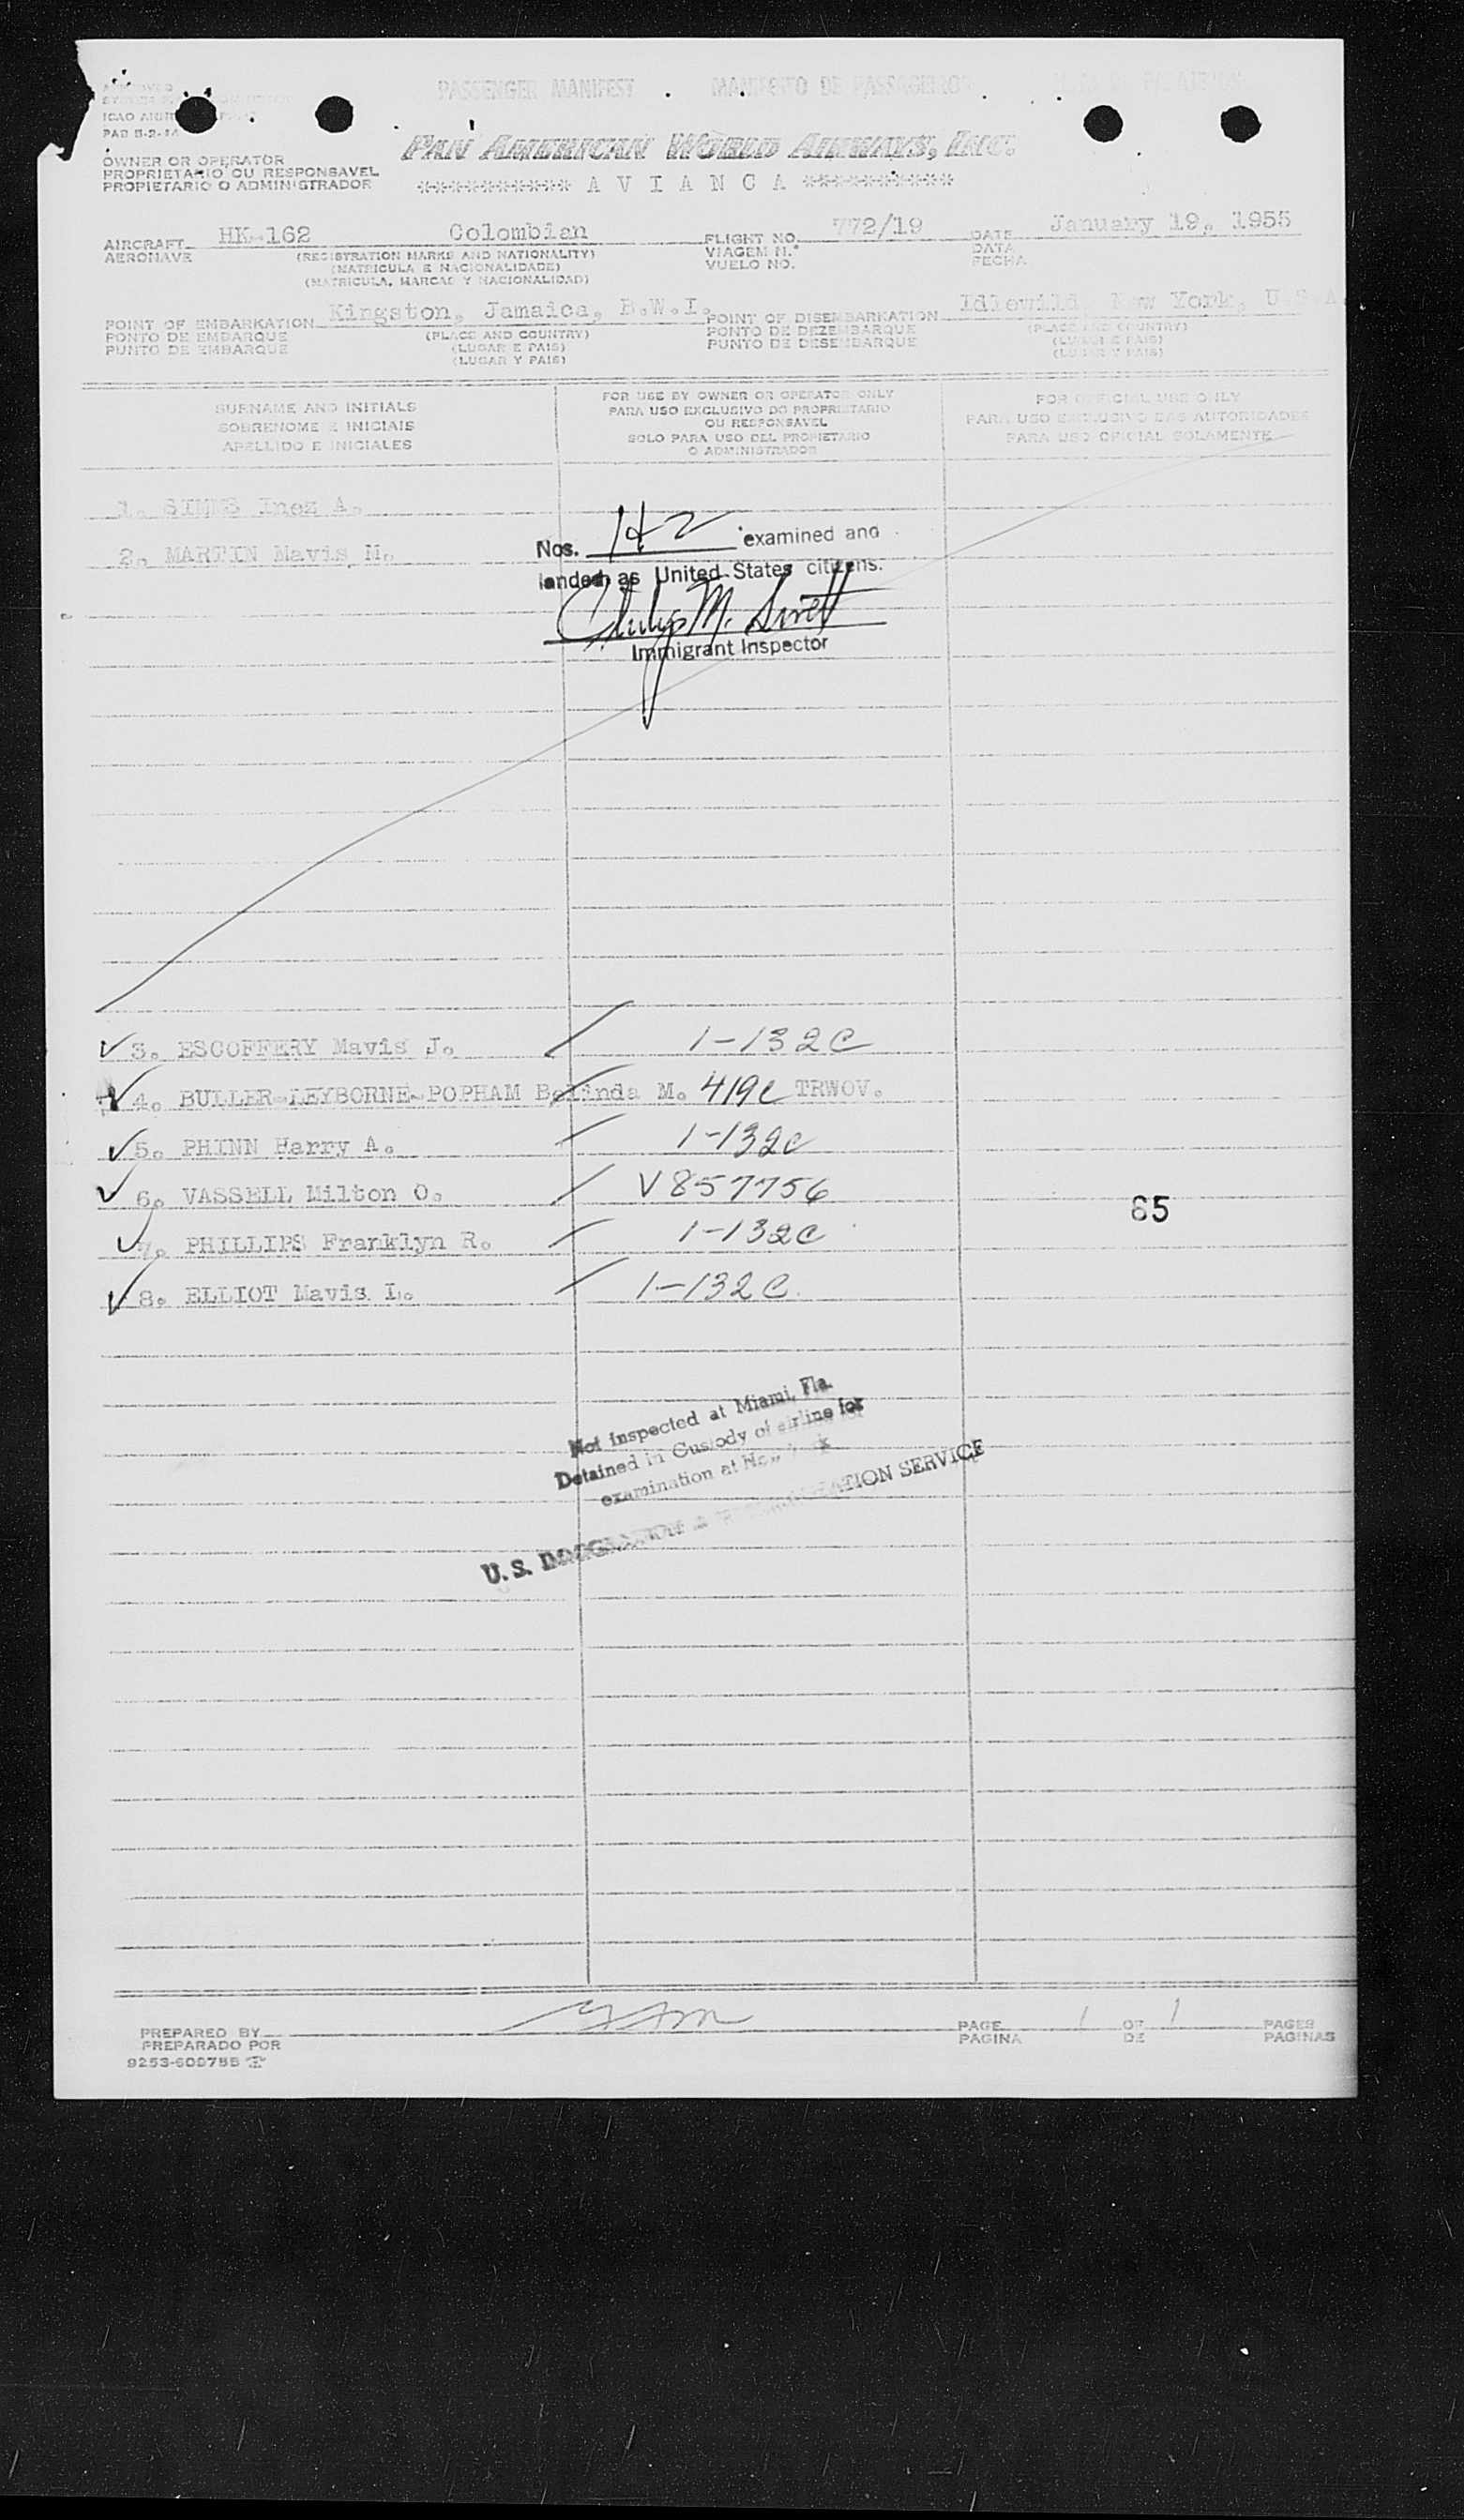 PASSENGER MANIFEST MANIFESTO DE PASSAGEIROS
PAN AMERICAN WORLD AIRWAYS, INC.
OWNER OR OPERATOR
PROPRIETARIO OU RESPONSAVEL
PROPIETARIO O ADMINISTRADOR
*********** A V I A N C A ***********
AIRCRAFT HK-162 Colombian FLIGHT NO. 772/19 DATE January 19, 1955
AERONAVE (REGISTRATION MARKS AND NATIONALITY) VIAGEM N.º DATA
(MATRICULA E NACIONALIDADE) VUELO NO. FECHA
(MATRICULA, MARCAS Y NACIONALIDAD)
POINT OF EMBARKATION Kingston, Jamaica, B.W.I. POINT OF DISEMBARKATION Idlewild New York, U.S.A.
PONTO DE EMBARQUE (PLACE AND COUNTRY) PONTO DE DEZEMBARQUE (PLACE AND COUNTRY)
PUNTO DE EMBARQUE (LUGAR E PAIS) PUNTO DE DESEMBARQUE (LUGAR E PAIS)
(LUGAR Y PAIS) (LUGAR Y PAIS)
SURNAME AND INITIALS
SOBRENOME E INICIAIS
APELLIDO E INICIALES
FOR USE BY OWNER OR OPERATOR ONLY
PARA USO EXCLUSIVO DO PROPRIETARIO
OU RESPONSAVEL
SOLO PARA USO DEL PROPIETARIO
O ADMINISTRADOR
FOR OFFICIAL USE ONLY
PARA USO EXCLUSIVO DAS AUTORIDADES
PARA USO OFICIAL SOLAMENTE
1. SIMMS Inez A.
2. MARTIN Mavis M.
Nos. 1+2 examined and
landed as United States citizens.
Philip M. Sirett
Immigrant Inspector
3. ESCOFFERY Mavis J. 1-132C
4. BULLER-LEYBORNE-POPHAM Belinda M. 419c TRWOV.
5. PHINN Harry A. 1-132c
6. VASSELL Milton O. V857756
65
7. PHILLIPS Franklyn R. 1-132C
8. ELLIOT Mavis I. 1-132C
Not inspected at Miami, Fla.
Detained in Custody of airline for
examination at New York
U.S. IMMIGRATION & NATURALIZATION SERVICE
PREPARED BY PAGE 1 OF 1 PAGES
PREPARADO POR PAGINA DE PAGINAS